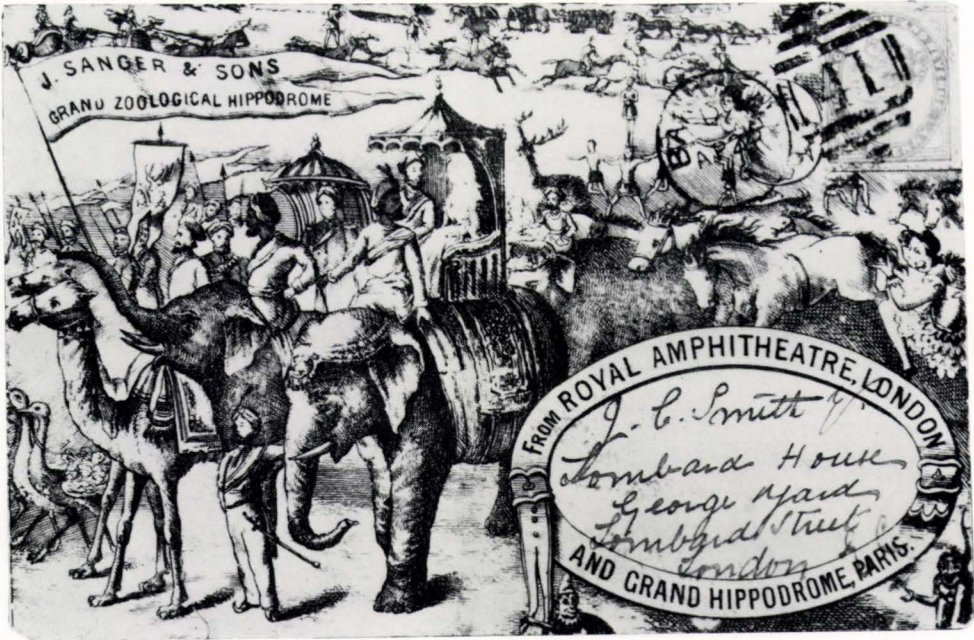 J. SANGER & SONS
GRAND ZOOLOGICAL HIPPODROME
BA
11
FROM ROYAL AMPHITHEATRE, LONDON
J. C. Smith
Lombard House
George Yard
Lombard Street
London
AND GRAND HIPPODROME, PARIS.